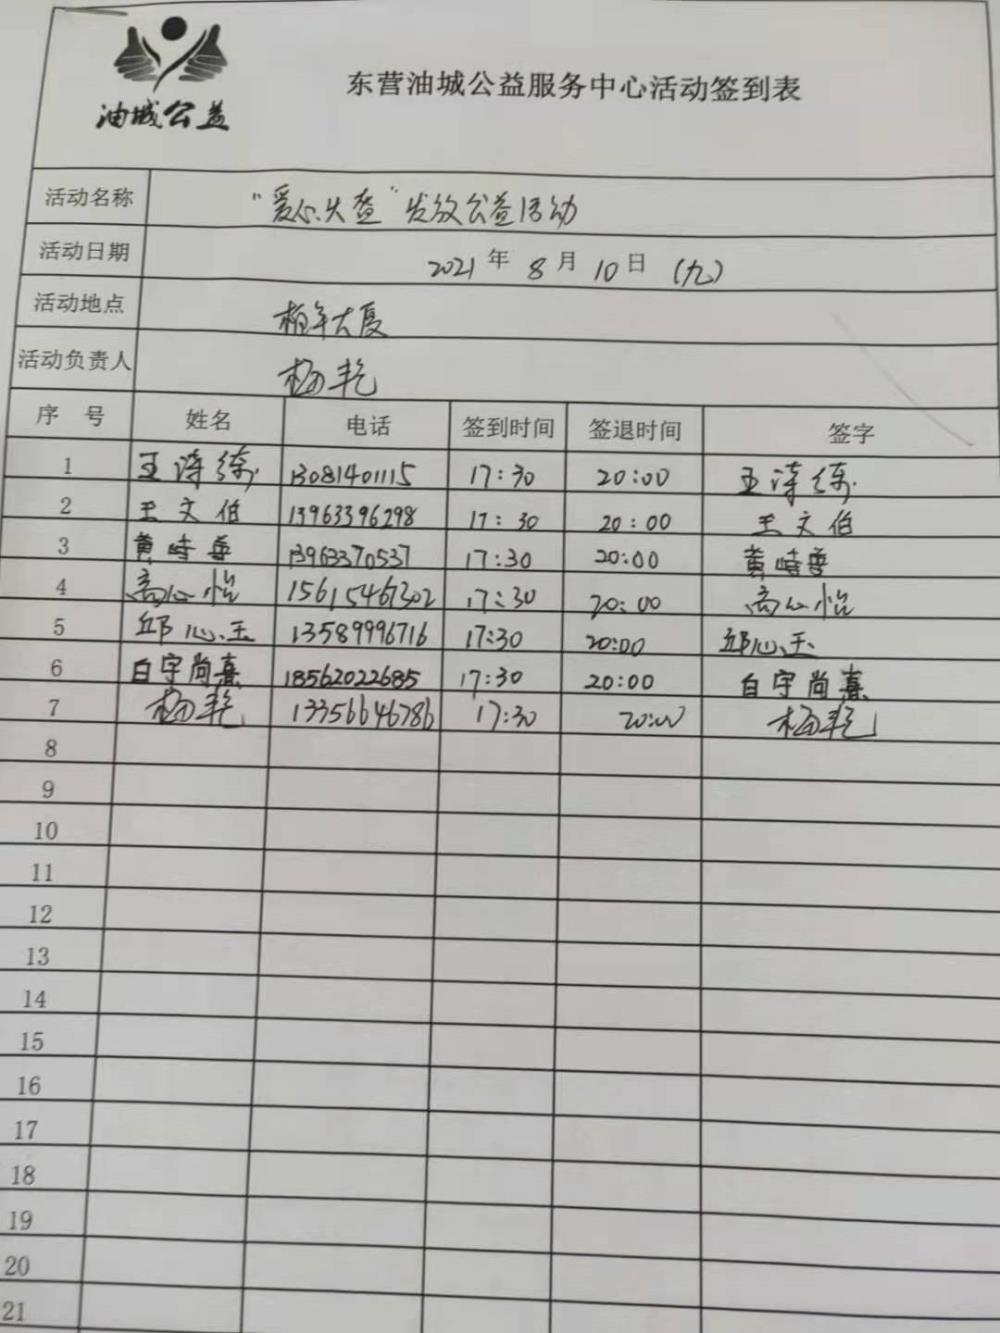 油城公益
东营油城公益服务中心活动签到表
活动名称 "爱心火查"发放公益活动
活动日期 2021年 8月 10日 (九)
活动地点 柏年大厦
活动负责人 杨艳
序号 姓名 电话 签到时间 签退时间 签字
1 王涛练 13081401115 17:30 20:00 王涛练
2 王文伯 13963396298 17:30 20:00 王文伯
3 黄 13963370537 17:30 20:00 黄
4 高心怡 15615467302 17:30 20:00 高心怡
5 邱心玉 13589996716 17:30 20:00 邱心玉
6 白宇尚熹 18562022685 17:30 20:00 白宇尚熹
7 杨艳 13356646786 17:30 20:00 杨艳
8
9
10
11
12
13
14
15
16
17
18
19
20
21